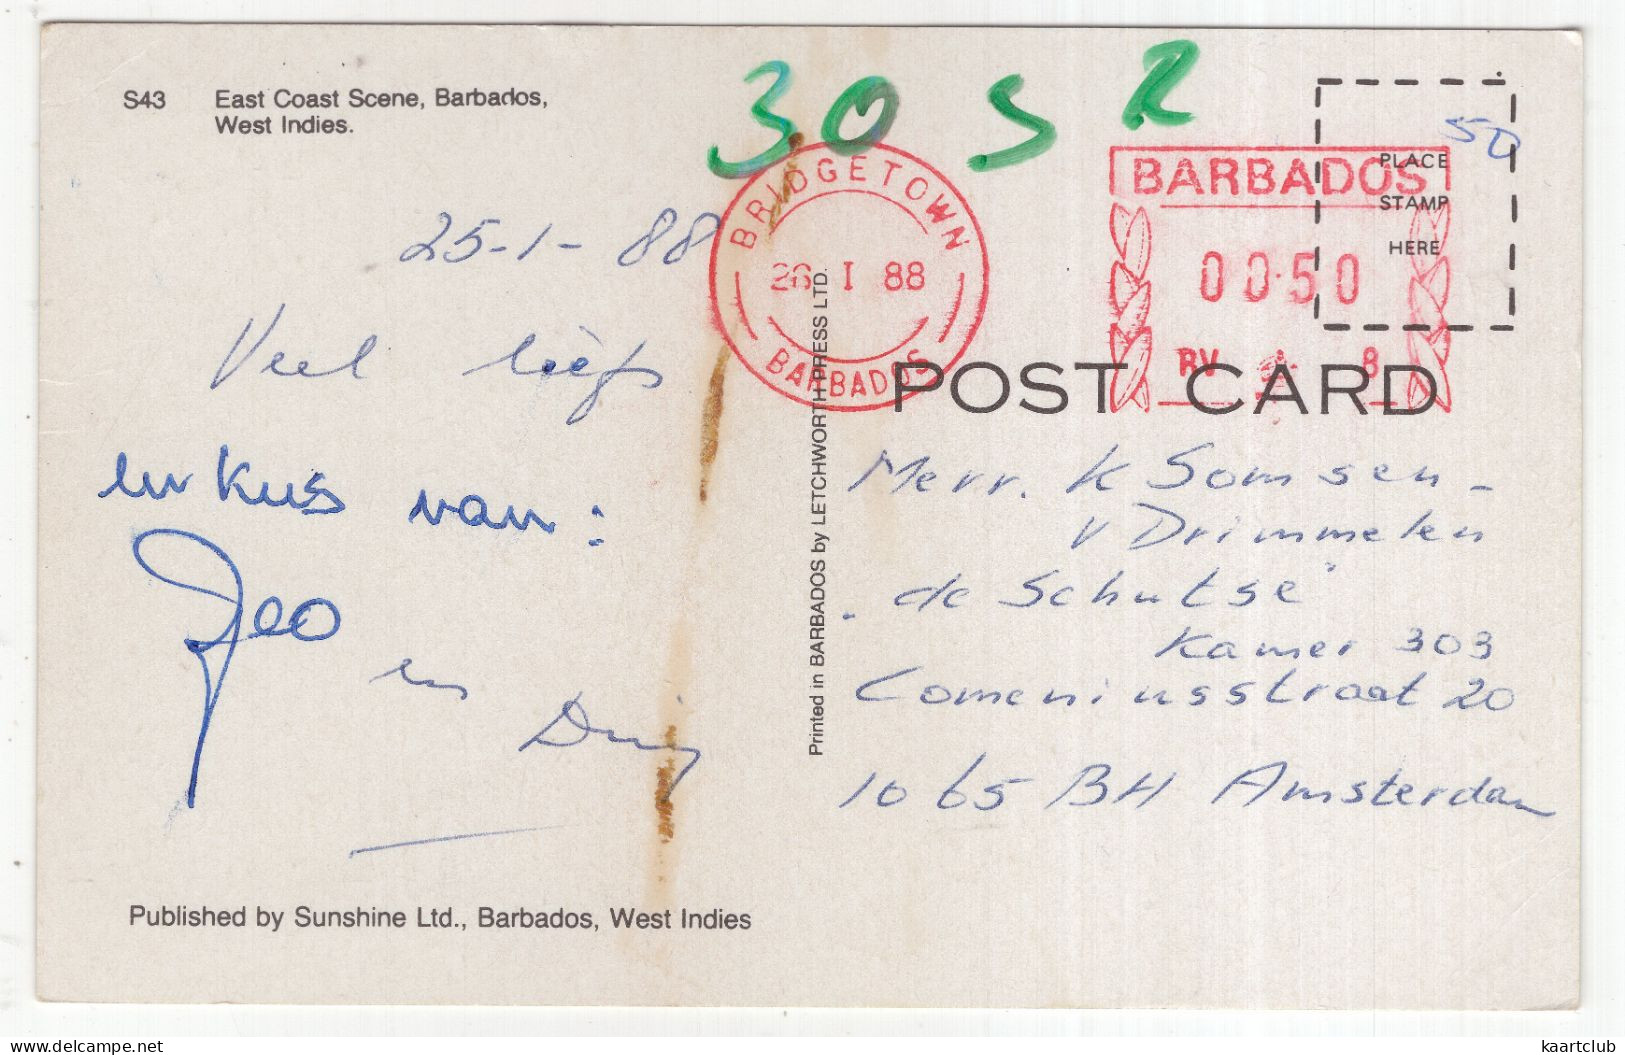 S43 East Coast Scene, Barbados,
West Indies.
30 S R
50
PLACE
STAMP
HERE
BRIDGETOWN
26 I 88
BARBADOS
BARBADOS
00.50
RV 8
POST CARD
25-1-88
Veel liefs
en kus van:
Geo
en
Merr. K Somsen -
v Drimmelen
"de Schutse"
Kamer 303
Comeniusstraat 20
1065 BH Amsterdam
Printed in BARBADOS by LETCHWORTH PRESS LTD.
Published by Sunshine Ltd., Barbados, West Indies
kaartclub
delcampe.net